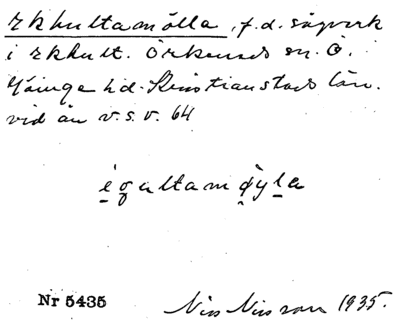 Ekhultamölla, f.d. sågverk
i Ekhult. Örkeneds sn. Ö.
Göinge hd. Kristianstads län.
vid ån v.s.v. 64
Nr 5435 Nils Nilsson 1935.